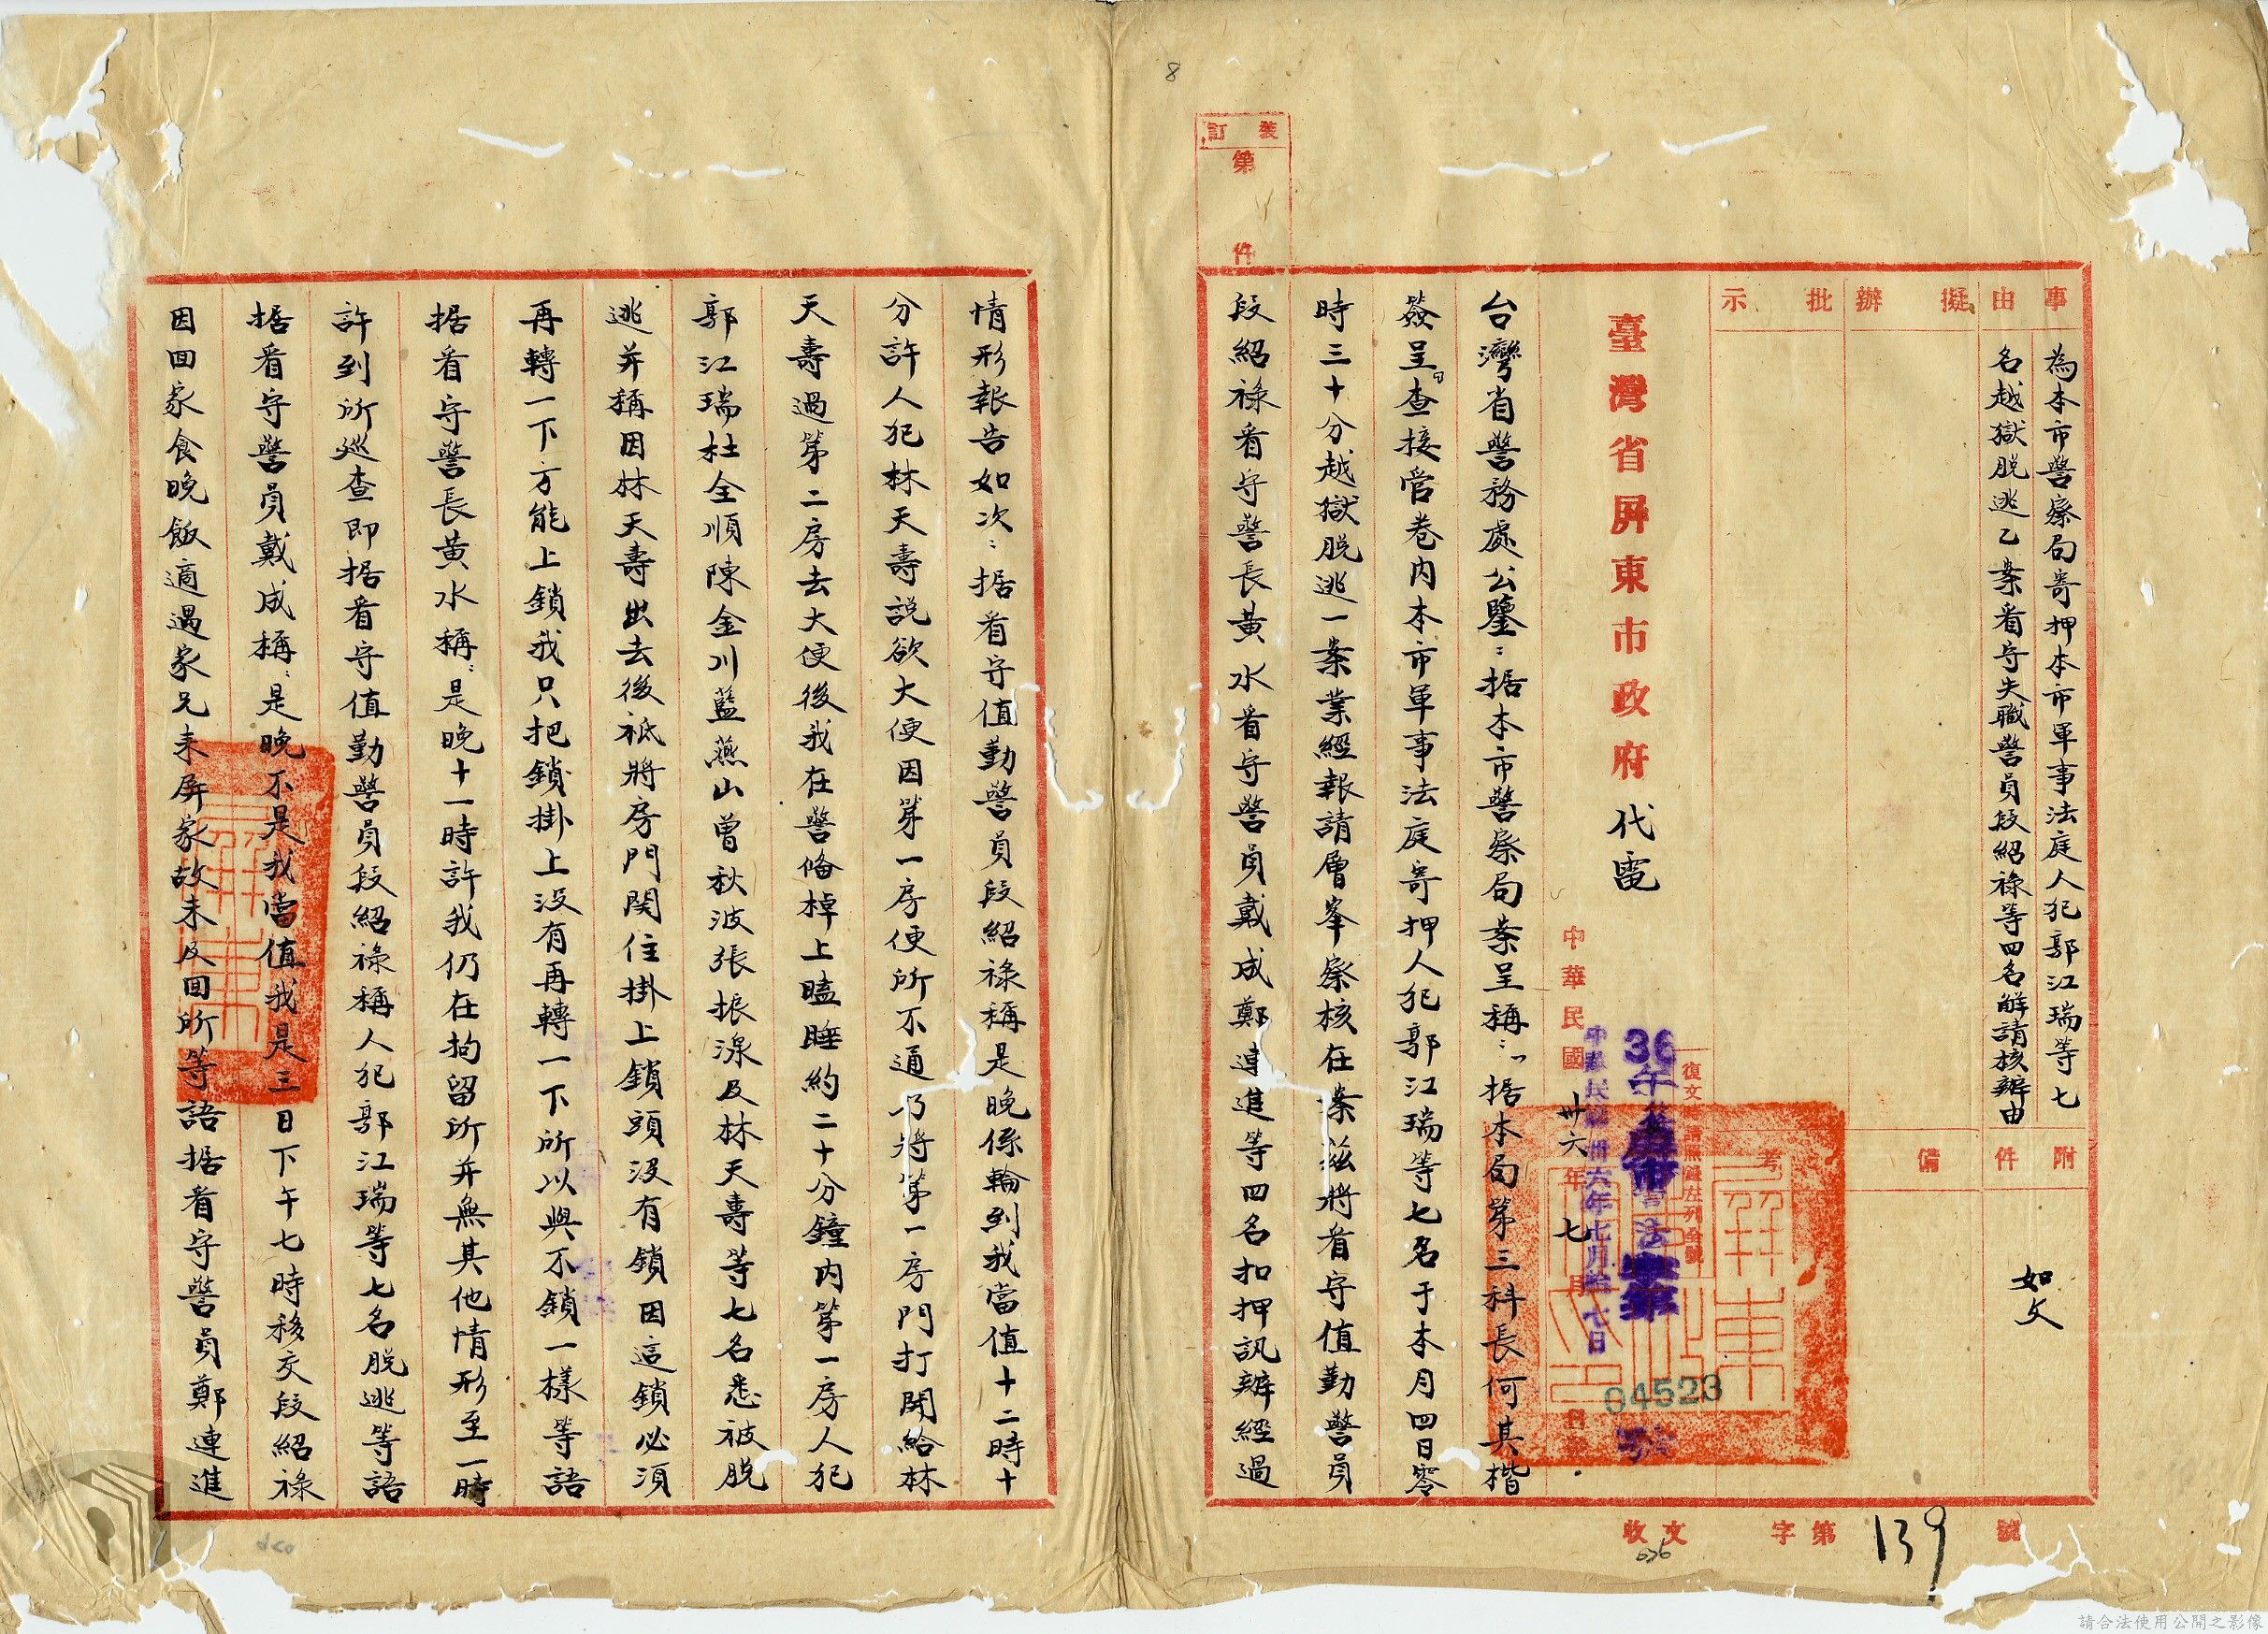 8
裝訂
第
件
事由
為本市警察局寄押本市軍事法庭人犯郭江瑞等七
名越獄脱逃乙案看守失職警員段紹祿等四名解請核辦由
附件
如文
擬辦
批示
備考
臺灣省屏東市政府代電
復文請照錄左列全號
中華民國卅六年七月 日
中華民國卅六年七月 七日
04523
台灣省警務處公鑒：据本市警察局案呈稱：「据本局第三科長何其楷
簽呈查接管巻內本市軍事法庭寄押人犯郭江瑞等七名于本月四日零
時三十分越獄脱逃一案業經報請層峯察核在案茲将看守值勤警員
段紹祿看守警長黃水看守警員戴成鄭連進等四名扣押訊辦經過
情形報告如次：据看守值勤警員段紹祿稱是晚係輪到我當值十二時十
分許人犯林天壽説欲大便因第一房便所不通乃将第一房門打開給林
天壽過第二房去大便後我在警俻棹上瞌睡約二十分鐘內第一房人犯
郭江瑞杜全順陳金川藍燕山曾秋波張振湶及林天壽等七名悉被脱
逃并稱因林天壽出去後祗將房門関住掛上鎖頭沒有鎖因這鎖必須
再轉一下方能上鎖我只把鎖掛上沒有再轉一下所以與不鎖一樣等語
据看守警長黃水稱：是晚十一時許我仍在拘留所并無其他情形至一時
許到所巡查即据看守值勤警員段紹祿稱人犯郭江瑞等七名脱逃等語
据看守警員戴成稱：是晚不是我當值我是三日下午七時移交段紹祿
因回家食晚飯適過家兄来屏家故未及回所等語据看守警員鄭連進
收文 字第139號
請合法使用公開之影像